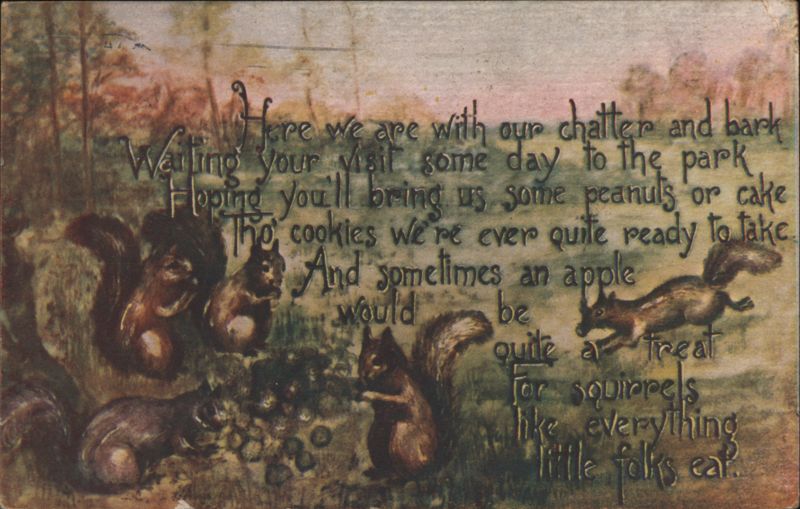 Here we are with our chatter and bark
Waiting your visit some day to the park
Hoping you'll bring us some peanuts or cake
Tho' cookies we're ever quite ready to take
And sometimes an apple
would be
quite a treat
For squirrels
like everything
little folks eat.